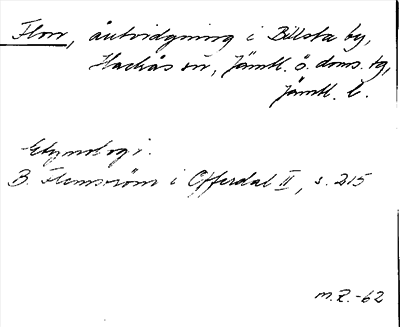 Flon, åutvidgning i Billsta by,
Hackås sn, Jämtl. ö. doms. tg,
Jämtl. l.
Etymologi.
B. Flemström i Offerdal II, s. 215
M.R.-62